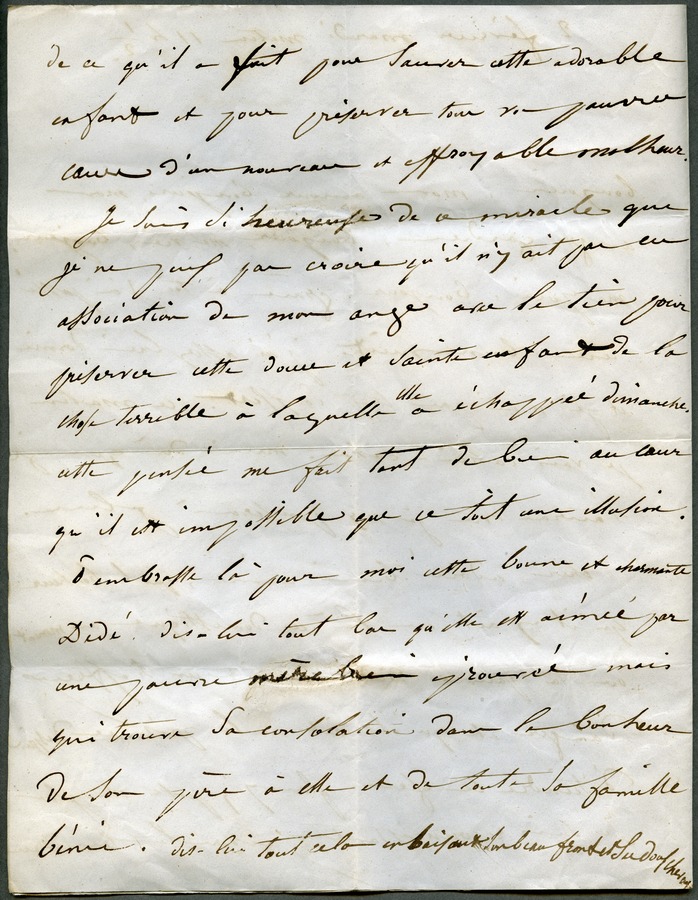 de ce qu'il a fait pour sauver cette adorable
enfant et pour préserver ton pauvre
cœur d'un nouveau et effroyable malheur.
Je suis si heureuse de ce miracle que
je ne puis pas croire qu'il n'y ait pas eu
association de mon ange avec le tien pour
préserver cette douce et sainte enfant de la
chose terrible à laquelle elle a échappé dimanche.
cette pensée me fait tant de bien au cœur
qu'il est impossible que ce soit une illusion.
Ô embrasse là pour moi cette bonne et charmante
Dédé. dis-lui tout bas qu'elle est aimée par
une pauvre mère bien éprouvée mais
qui trouve sa consolation dans le bonheur
de son père à elle et de toute sa famille
bénie. dis-lui tout cela en baisant son beau front et ses doux cheveux